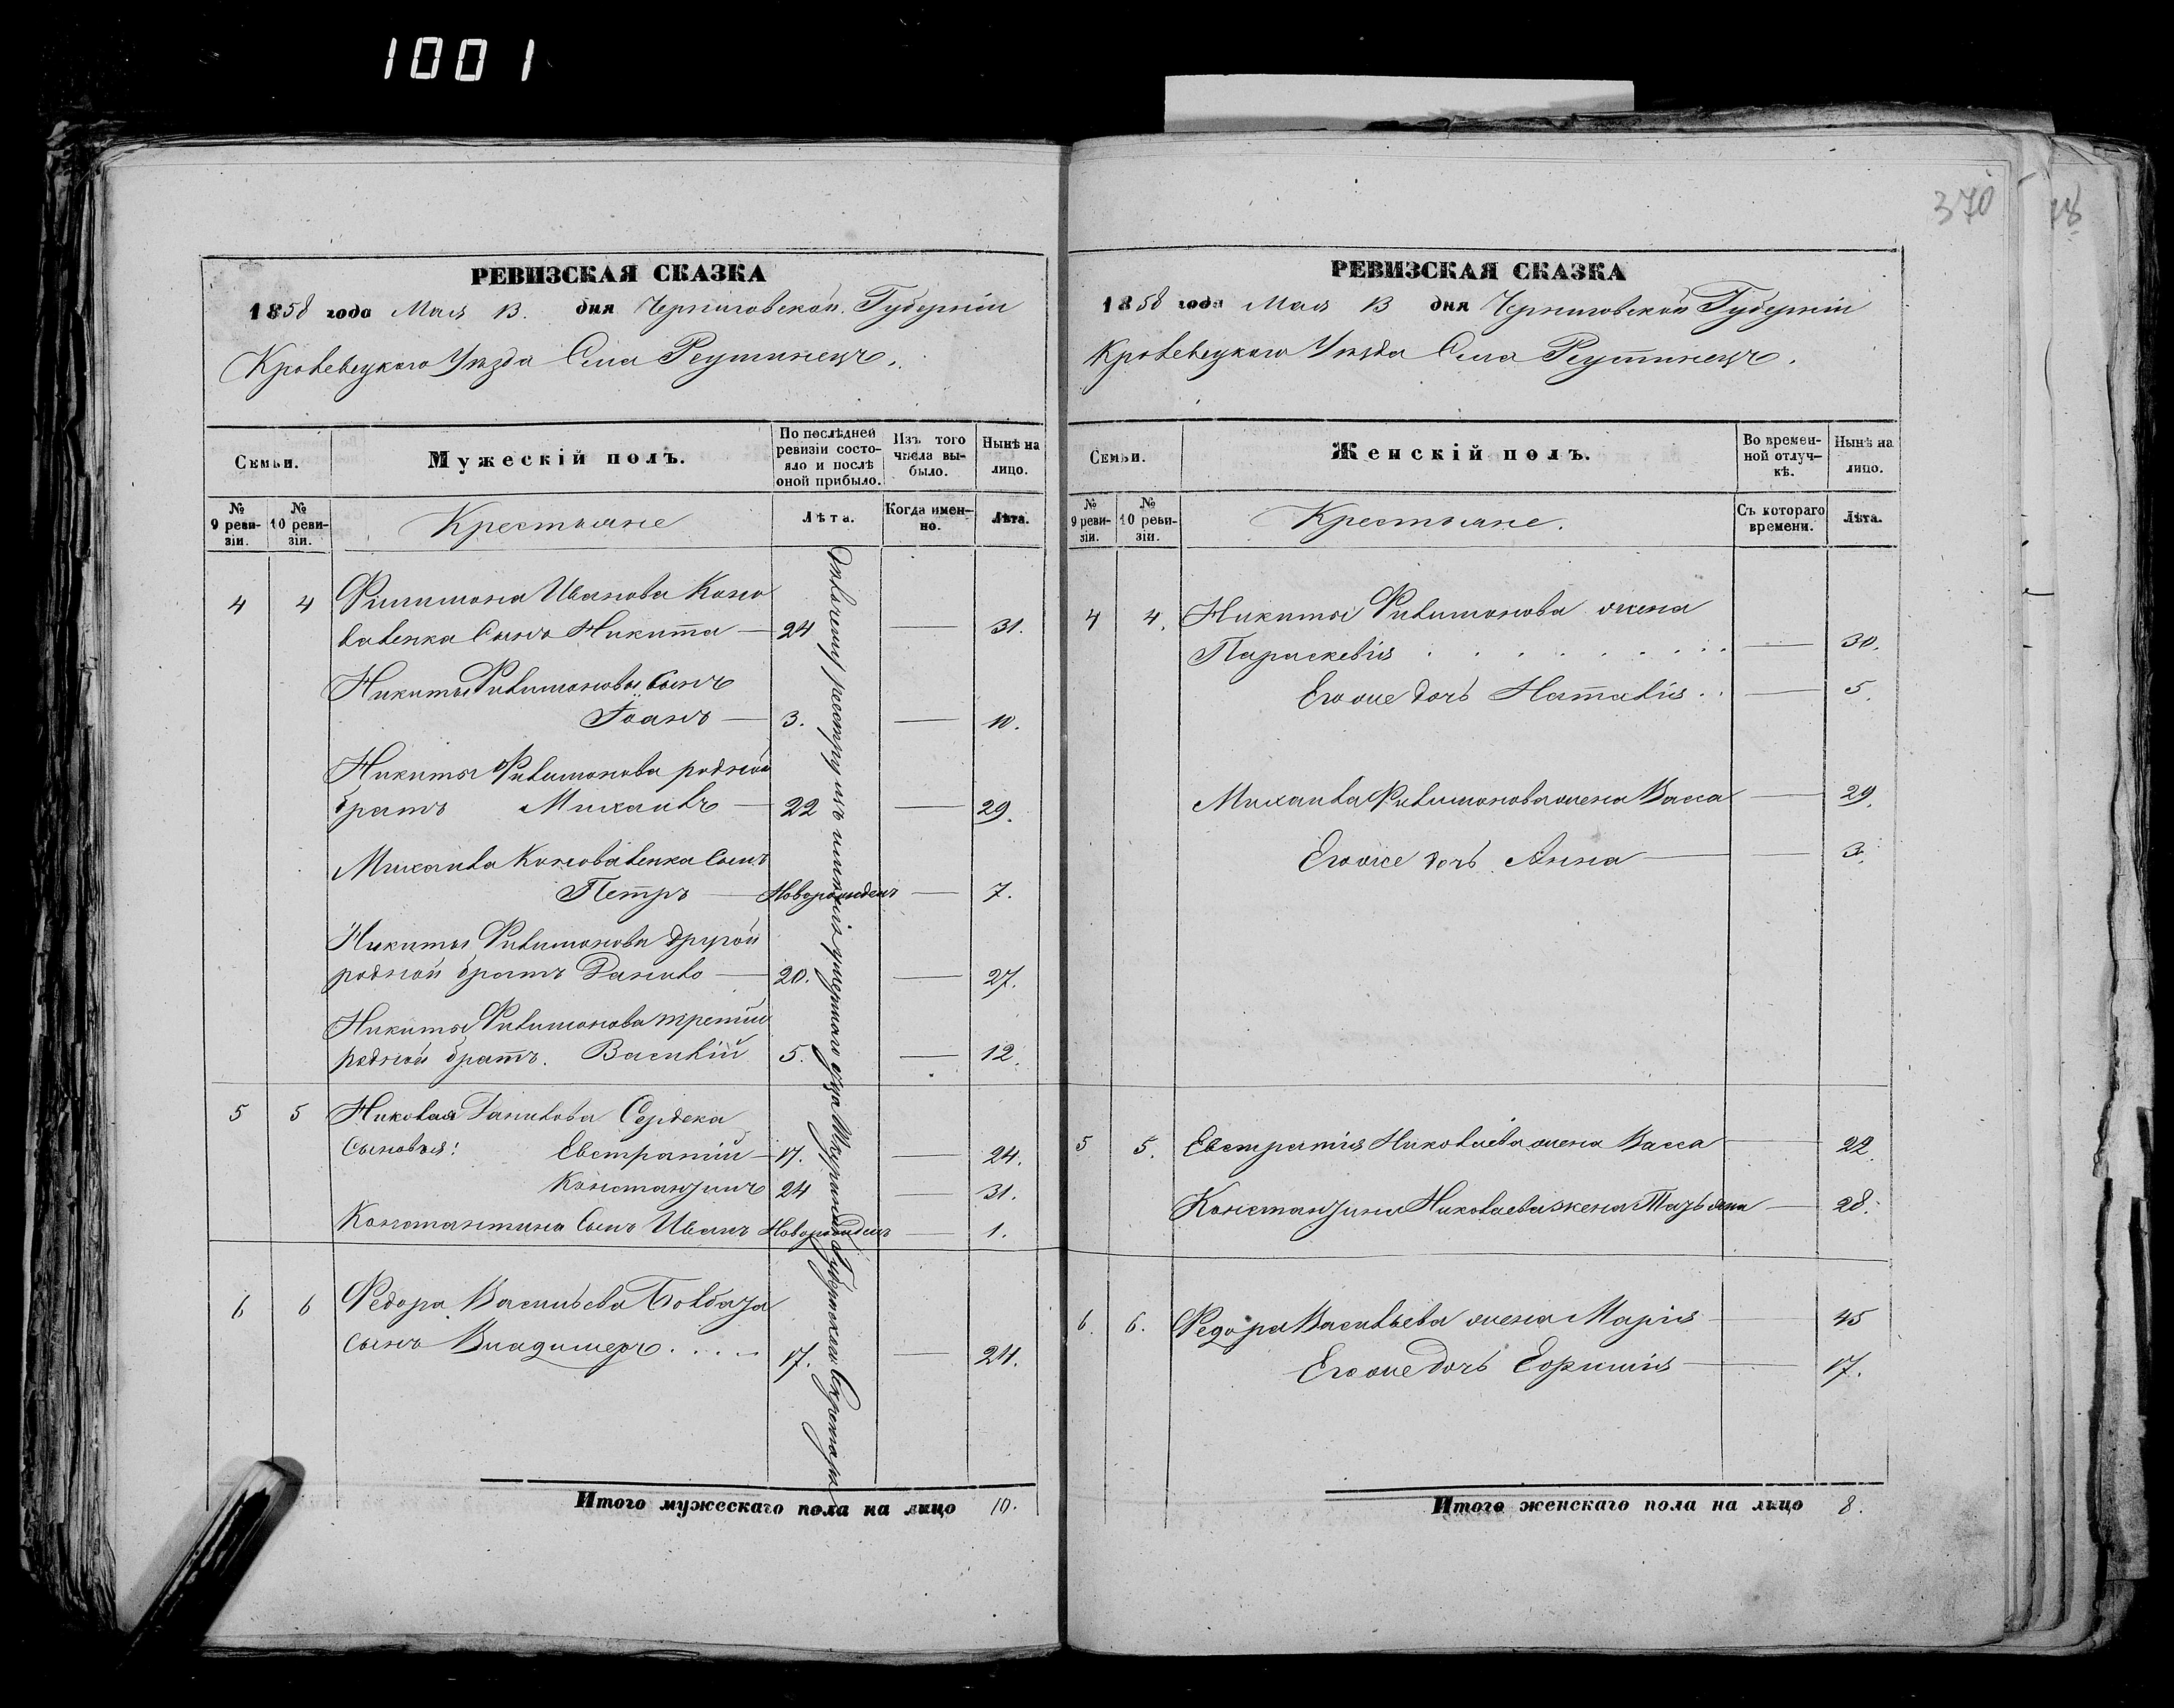 1001
370
18
РЕВИЗСКАЯ СКАЗКА
1858 года Мая 13. дня Черниговской Губерніи
Кролевецкого Уезда Села Реутинецъ.
Семьи.
Мужескій полъ.
По послѣдней ревизіи состояло и послѣ оной прибыло.
Изъ того числа выбыло.
Нынѣ на лицо.
№ 9 ревизіи.
№ 10 ревизіи.
Крестьяне
Лѣта.
Когда именно.
Лѣта.
4 4 Филимона Иванова Коно
валенка Сынъ Никита — 24 — 31.
Никиты Филимонова Сынъ
Іоанъ — 3. — 10.
Никиты Филимонова родной
братъ Михаилъ — 22 — 29.
Михаила Коноваленка Сынъ
Петръ — Новорожденъ — 7.
Никиты Филимонова другой
родной братъ Данило — 20. — 27.
Никиты Филимонова третій
родной братъ. Василій 5. — 12.
5 5 Николая Данилова Сердека
Сыновья: Евстратій — 17. — 24.
Константинъ 24 — 31.
Константина Сынъ Иванъ Новорожденъ — 1.
6 6 Федора Васильева Болбата
сынъ Владимеръ. . . . . 17. — 24.
Итого мужескаго пола на лицо 10.
РЕВИЗСКАЯ СКАЗКА
1858 года Мая 13 дня Черниговской Губерніи
Кролевецкаго Уезда Села Реутинецъ.
Семьи.
Женскій полъ.
Во временной отлучкѣ.
Нынѣ на лицо.
№ 9 ревизіи.
№ 10 ревизіи.
Крестьяне.
Съ котораго времени.
Лѣта.
4 4. Никиты Филимонова жена
Параскевія . . . . . . . . . — 30.
Егоже дочь Наталія . . — 5.
Михаила Филимонова жена Васса — 29.
Егоже дочь Анна — 3.
5 5. Евстратія Николаева жена Васса — 22.
Константина Николаева жена Татьяна — 28.
6. 6. Федора Васильева жена Марія — 45
Егоже дочь Ефимія — 17.
Итого женскаго пола на лицо 8.